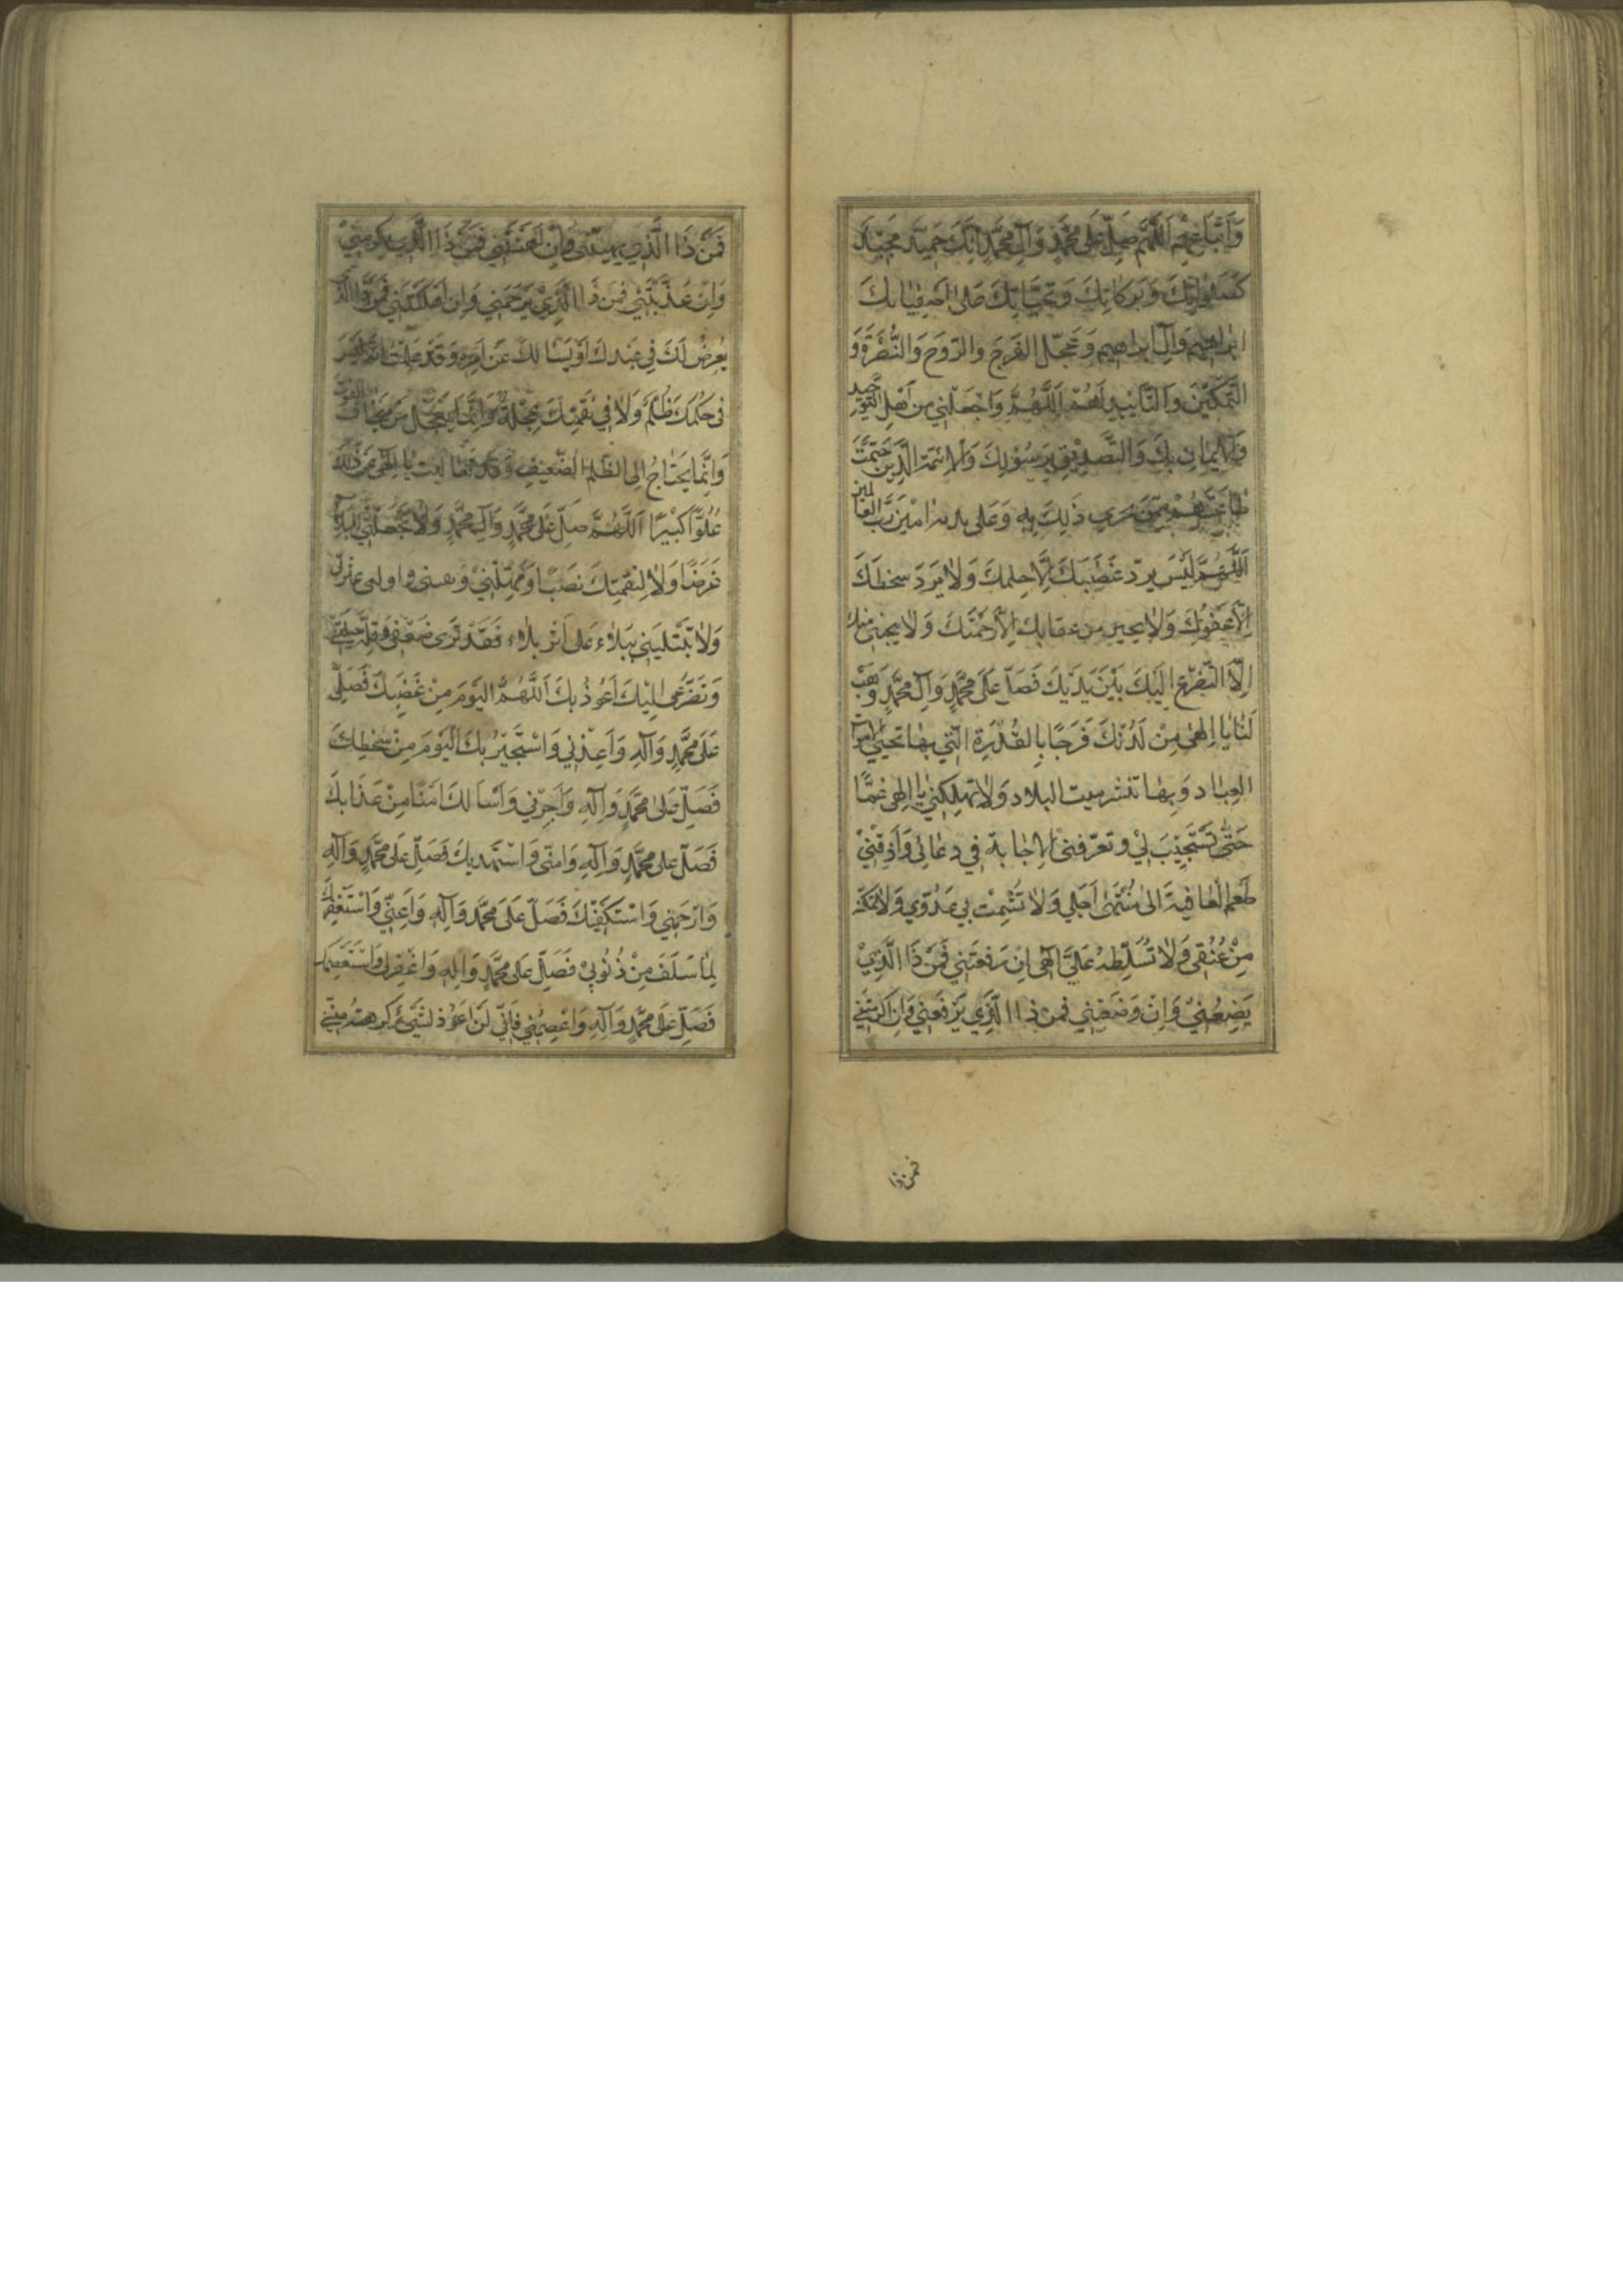 وَاَتْبَاعِهِمْ اَللّٰهُمَّ صَلِّ عَلٰى مُحَمَّدٍ وَآلِ مُحَمَّدٍ اِنَّكَ حَمِيْدٌ مَجِيْدٌ
كَصَلَوٰاتِكَ وَبَرَكَاتِكَ وَتَحِيَّاتِكَ عَلٰى اَصْفِيٰائِكَ
اِبْرٰاهِيْمَ وَآلِ اِبْرٰاهِيمَ وَعَجِّلِ الفَرَجَ وَالرَّوْحَ وَالنُّصْرَةَ وَ
التَّمْكِيْنَ وَالتَّايِيْدَ لَهُمْ اَللّٰهُمَّ وَاجْعَلْنِي مِنْ اَهْلِ التَّوْحِيدِ
وَالْاِيْمٰانِ بِكَ وَالتَّصْدِيْقِ بِرَسُوْلِكَ وَالْاَئِمَّةِ الَّذِيْنَ حَتَمْتَ
طَاعَتَهُمْ مِمَّنْ يَجْرِي ذٰلِكَ بِهِ وَعَلٰى يَدَيْهِ اٰمِيْنَ رَبَّ العٰالَمِيْنَ
اَللّٰهُمَّ لَيْسَ يَرُدُّ غَضَبَكَ اِلَّا حِلْمُكَ وَلَا يَرُدُّ سَخَطَكَ
اِلَّا عَفْوُكَ وَلَا يُجِيرُ مِنْ عِقَابِكَ اِلَّا رَحْمَتُكَ وَلَا يُنْجِيْنِي مِنْكَ
اِلَّا التَّضَرُّعُ اِلَيْكَ بَيْنَ يَدَيْكَ فَصَلِّ عَلٰى مُحَمَّدٍ وَآلِ مُحَمَّدٍ وَهَبْ
لَنٰا يٰا اِلٰهِي مِنْ لَدُنْكَ فَرَجًا بِالقُدْرَةِ الَّتِي بِهٰا تُحْيِيْ اَمْوٰاتَ
العِبٰادِ وَبِهٰا تَنْشُرُ مَيْتَ البِلَادِ وَلَا تُهْلِكْنِي يٰا اِلٰهِي غَمًّا
حَتّٰى تَسْتَجِيْبَ لِيْ وَتُعَرِّفَنِي الْاِجٰابَةَ فِي دُعٰائِي وَاَذِقْنِيْ
طَعْمَ الْعٰافِيَةِ اِلٰى مُنْتَهٰى اَجَلِي وَلَا تُشْمِتْ بِي عَدُوِّي وَلَا تُمَكِّنْهُ
مِنْ عُنُقِي وَلَا تُسَلِّطْهُ عَلَيَّ اِلٰهِي اِنْ رَفَعْتَنِي فَمَنْ ذَا الَّذِيْ
يَضَعُنِيْ وَاِنْ وَضَعْتَنِي فَمَنْ ذَا الَّذِي يَرْفَعُنِي وَاِنْ اَكْرَمْتَنِي
فمن ذا
فَمَنْ ذَا الَّذِي يُهِيْنُنِي وَاِنْ اَهَنْتَنِي فَمَنْ ذَا الَّذِي يُكْرِمُنِيْ
وَاِنْ عَذَّبْتَنِيْ فَمَنْ ذَا الَّذِيْ يَرْحَمُنِي وَاِنْ اَهْلَكْتَنِي فَمَنْ ذَا الَّذِي
يَعْرِضُ لَكَ فِي عَبْدِكَ اَوْ يَسْأَلُكَ عَنْ اَمْرِهِ وَقَدْ عَلِمْتُ اَنَّهُ لَيْسَ
فِي حُكْمِكَ ظُلْمٌ وَلَا فِي نَقِمَتِكَ عَجَلَةٌ وَاِنَّمَا يَعْجَلُ مَنْ يَخَافُ الفَوْتَ
وَاِنَّمَا يَحْتَاجُ اِلَى الظُّلْمِ الضَّعِيْفُ وَقَدْ تَعَالَيْتَ يَا اِلٰهِي عَنْ ذٰلِكَ
عُلُوًّا كَبِيْرًا اَللّٰهُمَّ صَلِّ عَلٰى مُحَمَّدٍ وَآلِ مُحَمَّدٍ وَلَا تَجْعَلْنِي لِلْبَلَاءِ
غَرَضًا وَلَا لِنَقِمَتِكَ نَصَبًا وَمَهِّلْنِيْ وَنَفِّسْنِي وَاَقِلْنِي عَثْرَتِي
وَلَا تَبْتَلِيَنِّي بِبَلَاءٍ عَلٰى اَثَرِ بَلَاءٍ فَقَدْ تَرٰى ضَعْفِي وَقِلَّةَ حِيْلَتِي
وَتَضَرُّعِي اِلَيْكَ اَعُوْذُ بِكَ اَللّٰهُمَّ اليَوْمَ مِنْ غَضَبِكَ فَصَلِّ
عَلٰى مُحَمَّدٍ وَآلِهِ وَاَعِذْنِي وَاَسْتَجِيْرُ بِكَ الْيَوْمَ مِنْ سَخَطِكَ
فَصَلِّ عَلٰى مُحَمَّدٍ وَآلِهِ وَاَجِرْنِي وَاَسْأَلُكَ اَمْنًا مِنْ عَذَابِكَ
فَصَلِّ عَلٰى مُحَمَّدٍ وَآلِهِ وَاٰمِنِّي وَاَسْتَهْدِيكَ فَصَلِّ عَلٰى مُحَمَّدٍ وَآلِهِ
وَارْحَمْنِي وَاَسْتَكْفِيْكَ فَصَلِّ عَلٰى مُحَمَّدٍ وَآلِهِ وَاَعِنِّي وَاَسْتَغْفِرُكَ
لِمٰا سَلَفَ مِنْ ذُنُوْبِيْ فَصَلِّ عَلٰى مُحَمَّدٍ وَآلِهِ وَاغْفِرْ لِي وَاَسْتَعْصِمُكَ
فَصَلِّ عَلٰى مُحَمَّدٍ وَآلِهِ وَاعْصِمْنِي فَاِنِّي لَنْ اَعُوْذَ لِشَيْءٍ كَرِهْتَهُ مِنِّي